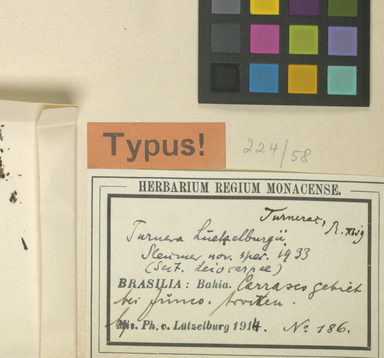 Typus!
224/58
HERBARIUM REGIUM MONACENSE.
Turnerac,
Turnera Lützelburgii
Sleumer nov. spec. 1933
(Sect. Leiocarpae)
BRASILIA: Bahia. Carrascogebiet
bei Junco.
Mis. Ph. v. Lützelburg 1914. No 186.